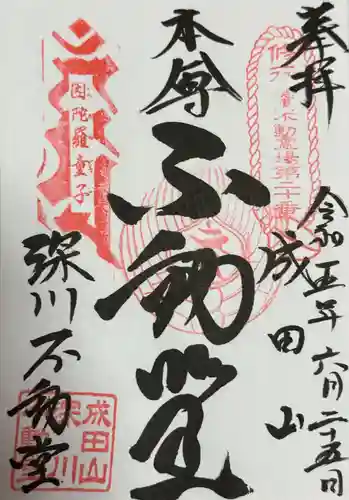 奉拝
令和五年六月二十五日
成田山
本尊
不動堂
深川不動堂
因陀羅童子
成田山
深川
不動堂